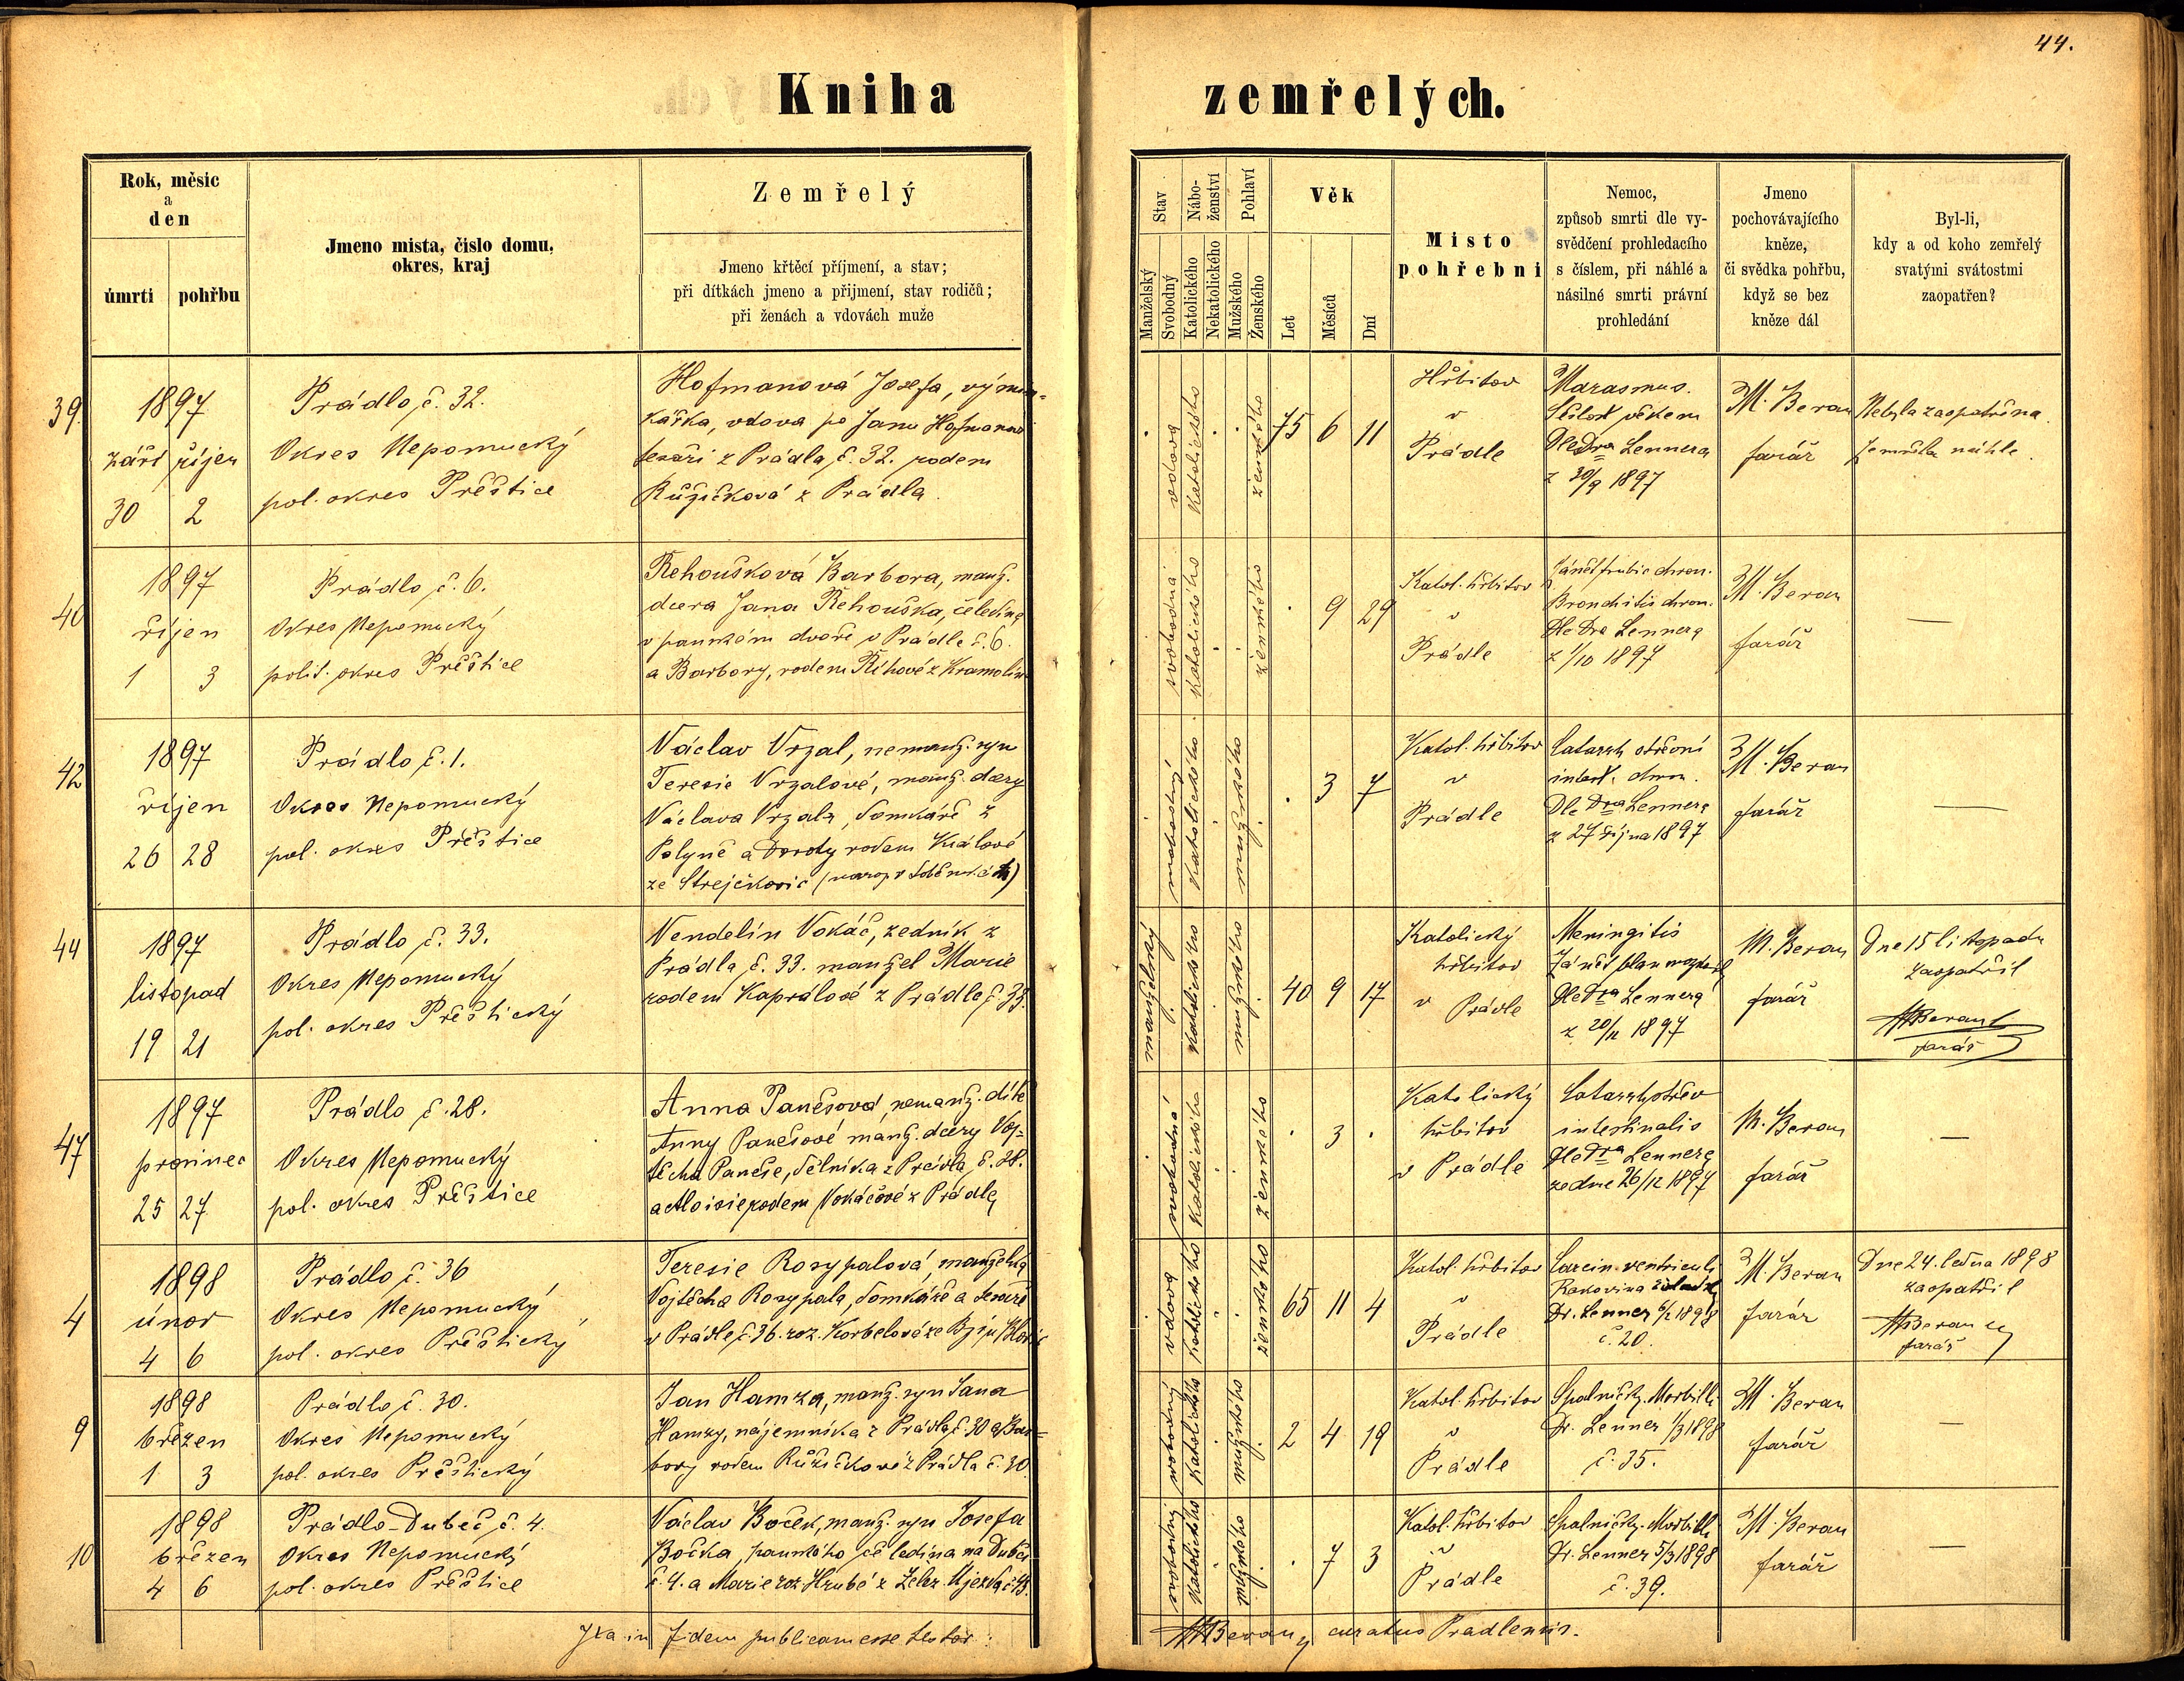 44.
Kniha zemřelých.
Rok, měsic
a
den
úmrti pohřbu
Jmeno mista, čislo domu,
okres, kraj
Zemřelý
Jmeno křtěcí příjmení, a stav;
při dítkách jmeno a přijmení, stav rodičů;
při ženách a vdovách muže
Stav
Manželský
Svobodný
Nábo-
ženství
Katolického
Nekatolického
Pohlaví
Mužského
Ženského
Věk
Let
Měsíců
Dní
Misto
pohřebni
Nemoc,
způsob smrti dle vy-
svědčení prohledacího
s číslem, při náhlé a
násilné smrti právní
prohledání
Jmeno
pochovávajícího
kněze,
či svědka pohřbu,
když se bez
kněze dál
Byl-li,
kdy a od koho zemřelý
svatými svátostmi
zaopatřen?
39.
1897
září říjen
30 2
Prádlo č. 32.
Okres Nepomucký
pol. okres Přeštice
Hofmanová Josefa, výmin-
kářka, vdova po Janu Hofmanu
tesaři z Prádla, č. 32. rodem
Růžičková z Prádla.
vdova
katolického
ženského
75 6 11
Hřbitov
v
Prádle
Marasmus.
Sešlost věkem
Dle Dra Lennera
z 30/9 1897
M. Beran
farář
Nebyla zaopatřena
Zemřela náhle.
40
1897
říjen
1 3
Prádlo č. 6.
Okres Nepomucký
polit. okres Přeštice
Řehoušková Barbora, manž.
dcera Jana Řehouška, čeledína
v panském dvoře v Prádle č. 6.
a Barbory, rodem Říhové z Kramolín
svobodná
katolického
ženského
. 9 29
Katol. hřbitov
v
Prádle
Zánět průdic chron.
Bronchitis chron.
Dle Dra Lennera
z 1/10 1897
M. Beran
farář
—
42
1897
říjen
26 28
Prádlo č. 1.
Okres Nepomucký
pol. okres Přeštice
Václav Vrzal, nemanž. syn
Teresie Vrzalové, manž. dcery
Václava Vrzala, domkáře z
Polyně a Doroty rodem Králové
ze Strejčkovic
svobodný
katolického
mužského
. 3 7
Katol. hřbitov
v
Prádle
Catarrh střevní
intest. chron.
Dle Dra Lennera
z 27 října 1897
M. Beran
farář
—
44
1897
listopad
19 21
Prádlo č. 33.
Okres Nepomucký
pol. okres Přeštický
Vendelín Vokáč, zedník z
Prádla, č. 33. manžel Marie
rodem Kaprálové z Prádle č. 33.
manželský
katolického
mužského
40 9 17
Katolický
hřbitov
v Prádle
Meningitis
Zánět blan mozkových
Dle Dra Lennera
z 20/11 1897
M. Beran
farář
Dne 15 listopadu
zaopatřil
MBeran
farář
47
1897
prosinec
25 27
Prádlo č. 28.
Okres Nepomucký
pol. okres Přeštice
Anna Panešová, nemanž. dítě
Anny Panešové manž. dcery Voj-
těcha Paneše, dělníka z Prádla č. 28.
a Aloisie rodem Vokáčové z Prádla
svobodná
katolického
ženského
. 3 .
Katolický
hřbitov
v Prádle
Catarrh střev
intestinalis
Dle Dra Lennera
ze dne 26/12 1897
M. Beran
farář
—
4
1898
únor
4 6
Prádlo č. 36
Okres Nepomucký
pol. okres Přeštický
Teresie Rosypalová, manželka
Vojtěcha Rosypala, domkáře a tesaře
v Prádle, č. 36. roz. Korbelové ze
vdova
katolického
ženského
65 11 4
Katol. hřbitov
v
Prádle
Carcin. ventriculi
Rakovina žaludku
Dr. Lenner 6/2 1898
č. 20.
M. Beran
farář
Dne 24. ledna 1898
zaopatřil
MBeran
farář
9
1898
březen
1 3
Prádlo č. 30.
Okres Nepomucký
pol. okres Přeštický
Jan Hamza, manž. syn Jana
Hamzy, nájemníka z Prádla, č. 30 a Bar-
bory rodem Růžičkové z Prádla č. 30.
svobodný
katolického
mužského
2 4 19
Katol. hřbitov
v
Prádle
Spalničky. Morbilli
Dr. Lenner 1/3 1898
č. 35.
M. Beran
farář
—
10
1898
březen
4 6
Prádlo-Dubeč, č. 4.
Okres Nepomucký
pol. okres Přeštice
Václav Boček, manž. syn Josefa
Bočka, panského čeledína na Dubči
č. 4. a Marie roz. Hrubé z Želez. Újezda č. 43.
svobodný
katolického
mužského
. 7 3
Katol. hřbitov
v
Prádle
Spalničky. Morbilli
Dr. Lenner 5/3 1898
č. 39.
M. Beran
farář
—
Ita in fidem publicam esse testor:
MBeran, curatus Pradlensis.